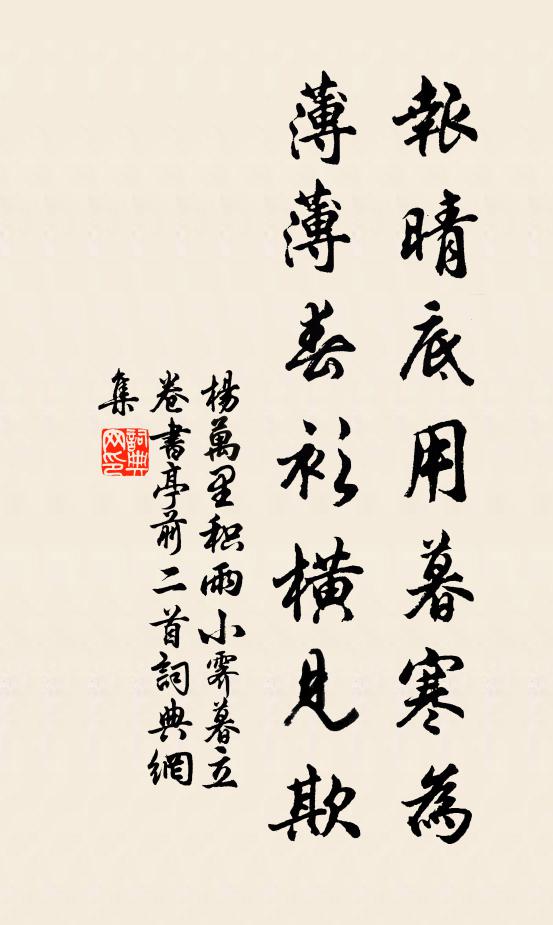 報晴底用暮寒為
薄薄春衫橫見欺
楊萬里積雨小霽暮立
卷書亭前二首詞典網
集
詞典
网印